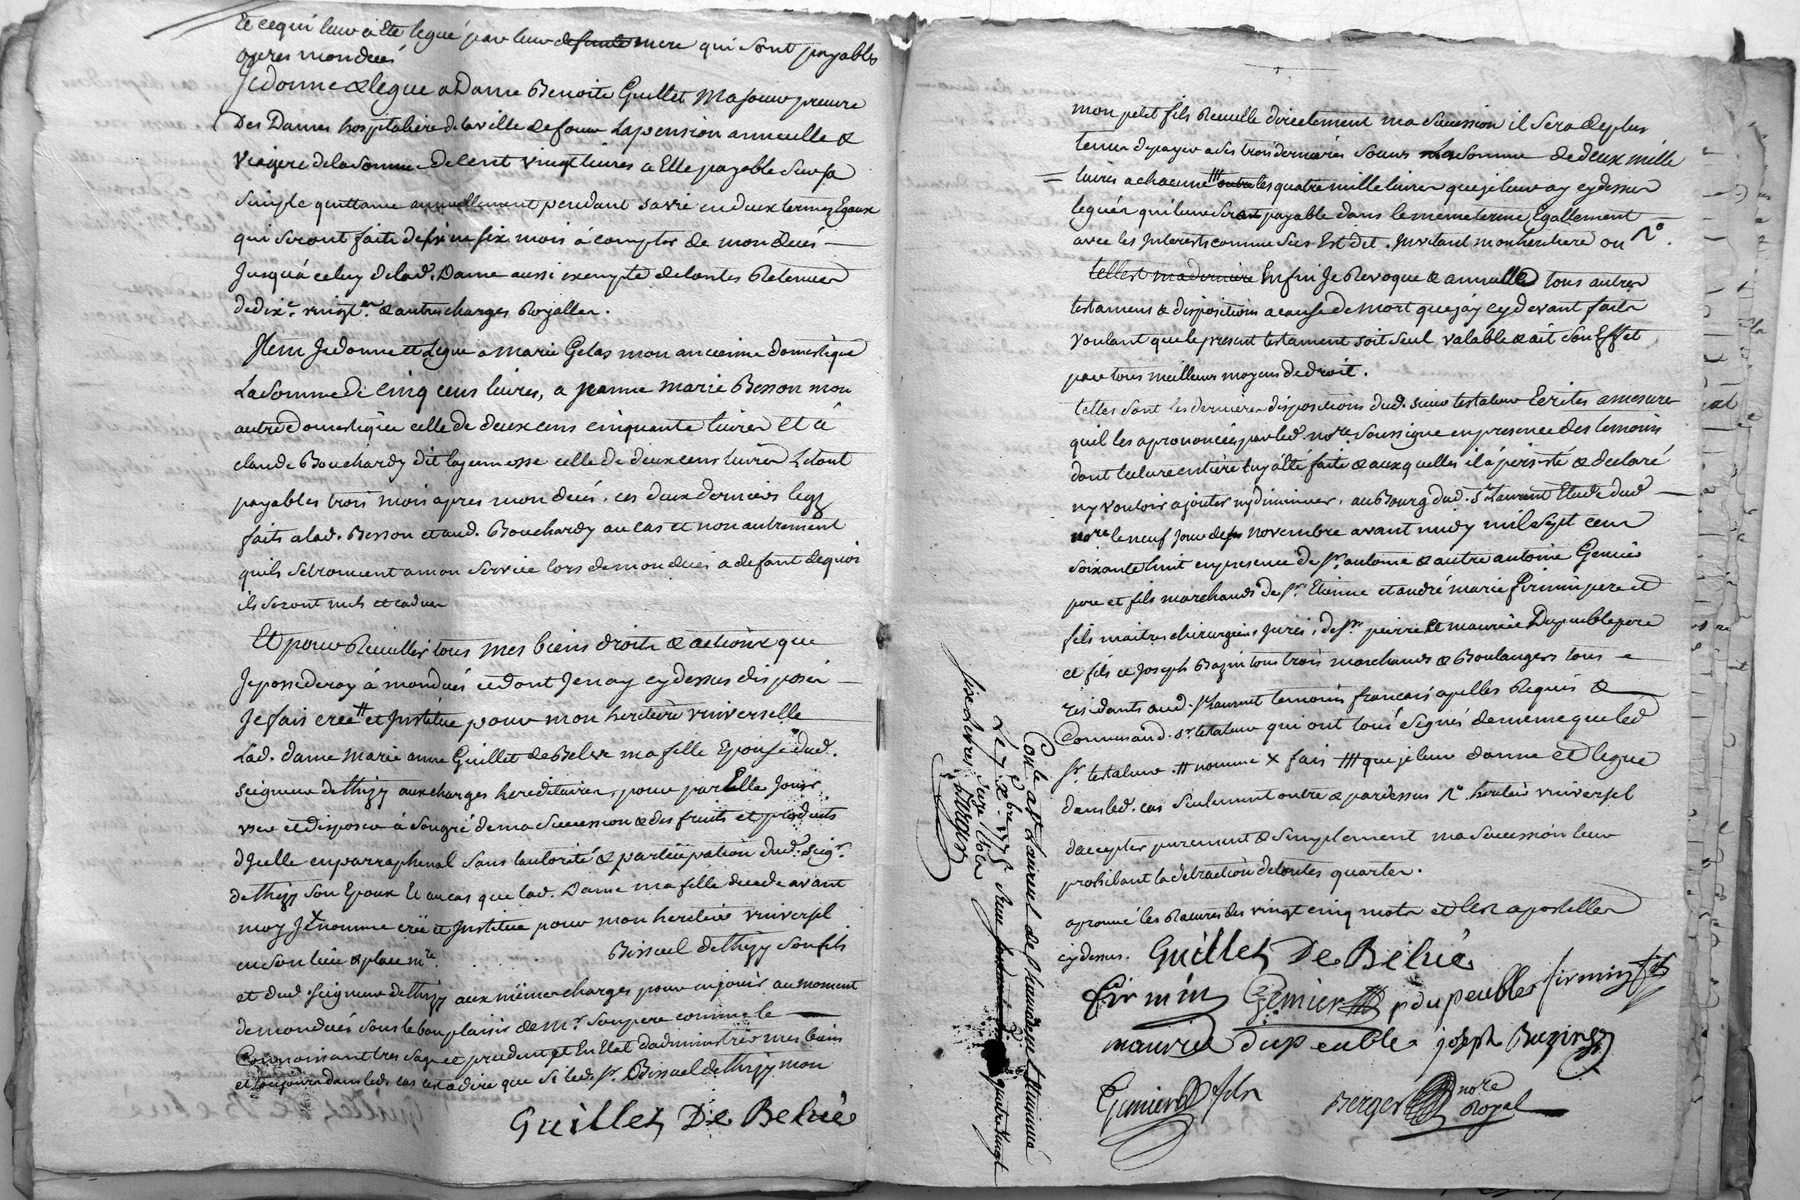 Et ce qui leur a Eté legué par leur defunte mere qui sont payables
apres mon decés
Je donne & legue a Dame Benoite Guillet Ma soeur preure
Des Dames hospitaliere de la ville de La pension annuelle &
Viagere de la Somme de Cent vingt livres a Elle payable Sur sa
Simple quittance annuellement pendant sa vie en deux termes Egaux
qui seront faits de six en six mois à compter de mon decés
Jusqu'à celuy de lad. Dame aussi exempte de toutes Retenues
de dixe. vingte. & autres charges Royalles.
Item Je donne et Legue a Marie Gelas mon ancienne domestique
La Somme de Cinq cens livres, a jeanne Marie Besson mon
autre domestique celle de deux cens cinquante livres et à
claude Bouchardy dit lajeunesse celle de deux cens livres Le tout
payables trois mois apres mon decés, ces deux derniers legs
faits a lad. Besson et aud. Bouchardy au cas et non autrement
quils se trouvent a mon service lors de mon decés a defaut de quoi
ils seront nuls et caducs
Et pour Recuillir tous mes biens droits & actions que
Je possederay à mon decés et dont Je n'ay cy dessus disposé
Je fais creé # et Institue pour mon heritiere universelle
Lad. dame Marie anne Guillet de Belue ma fille Epouse dud.
Seigneur de thizy aux charges hereditaires, pour par Elle Jouir
user et disposer à son gré de ma Succession & des fruits et produits
d'Icelle en parraphenal sans l'autorité & participation dud. Seigr.
de thizy son Epoux Et au cas que lad. Dame ma fille decede avant
moy Je x nomme créé et Institue pour mon heritier universel
en son lieu & place mre. Bissuel de thizy son fils
et dud. Seigneur de thizy aux mêmes charges pour en jouir au moment
de mon decés sous le bon plaisir de Mr. Son pere comme le
Connoissant tres sage et prudent et En Etat d'administrer mes biens
et toujours dans led. cas c'est a dire que si led. Sr. Bissuel de thizy mon
Guillet De Belué
mon petit fils Recuille directement ma Succession il sera de plus
tenu de payer a ses trois dernieres Soeurs La Somme de deux mille
livres a chacune ### outre les quatre mille livres que je leur ay cy dessus
legués qui leur seront payable dans le meme terme Egallement
avec les Interests comme Sus Est dit. Invitant mon heritiere ou ho.
telle est ma derniere Enfin Je Revoque & annulle tous autres
testament & dispositions a cause de mort que j'ay cy devant faits
voulant que le present testament soit seul valable & ait son Effet
par tous meilleurs moyens de droit.
telles sont les dernieres dispositions dud. sieur testateur Ecrites a mesure
qu'il les a prononcées par led. nore. Soussigné en presence des temoins
dont lecture entiere luy a Eté faite & auxquelles il a persisté & declaré
n'y vouloir ajouter ny diminuer, au Bourg dud. St. Laurent Etude dud.
nore le neuf Jour de novembre avant midy mil Sept cens
soixante huit en presence de Sr. antoine & autre antoine Gemier
pere et fils marchands de Sr. Etienne et andré marie Firmin pere et
fils maitres chirurgiens Jurés, de Sr. pierre et maurice Dupeuble pere
et fils et Joseph Bazin tous trois marchands & Boulangers tous
residants aud. St. Laurent temoins francais apellés Requis &
Connus aud. Sr. testateur qui ont tous signés de meme que led.
Sr. testateur # nomme x fais ### que je leur donne et legue
dans led. cas seulement outre & pardessus ho. heritier universel
d'accepter purement & simplement ma succession leur
prohibant la detraction de toutes quartes.
aprouvé les ratures des vingt cinq mots et les apostilles
cy dessus. Guillet De Belué
Firmin Gemier pdupeuble firmin fils
maurice dupeuble joseph Bazin
Gemier fils Berger nore Royal
Conle. a St. Laurent de Chamousset
Le 7 xbre. 1775
quatre vingt
Six Livres
Berger